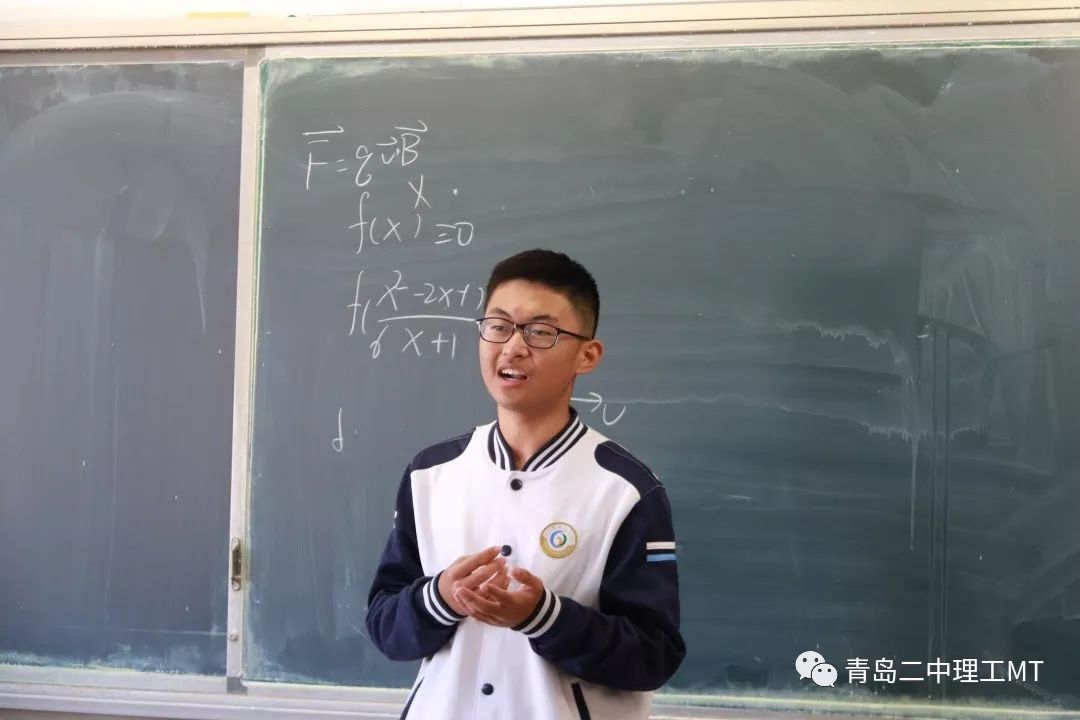 F⃗ = q v⃗ B⃗
x .
f(x) ≡ 0
f(x² - 2x + 1
x + 1
d
→ v
青岛二中理工MT